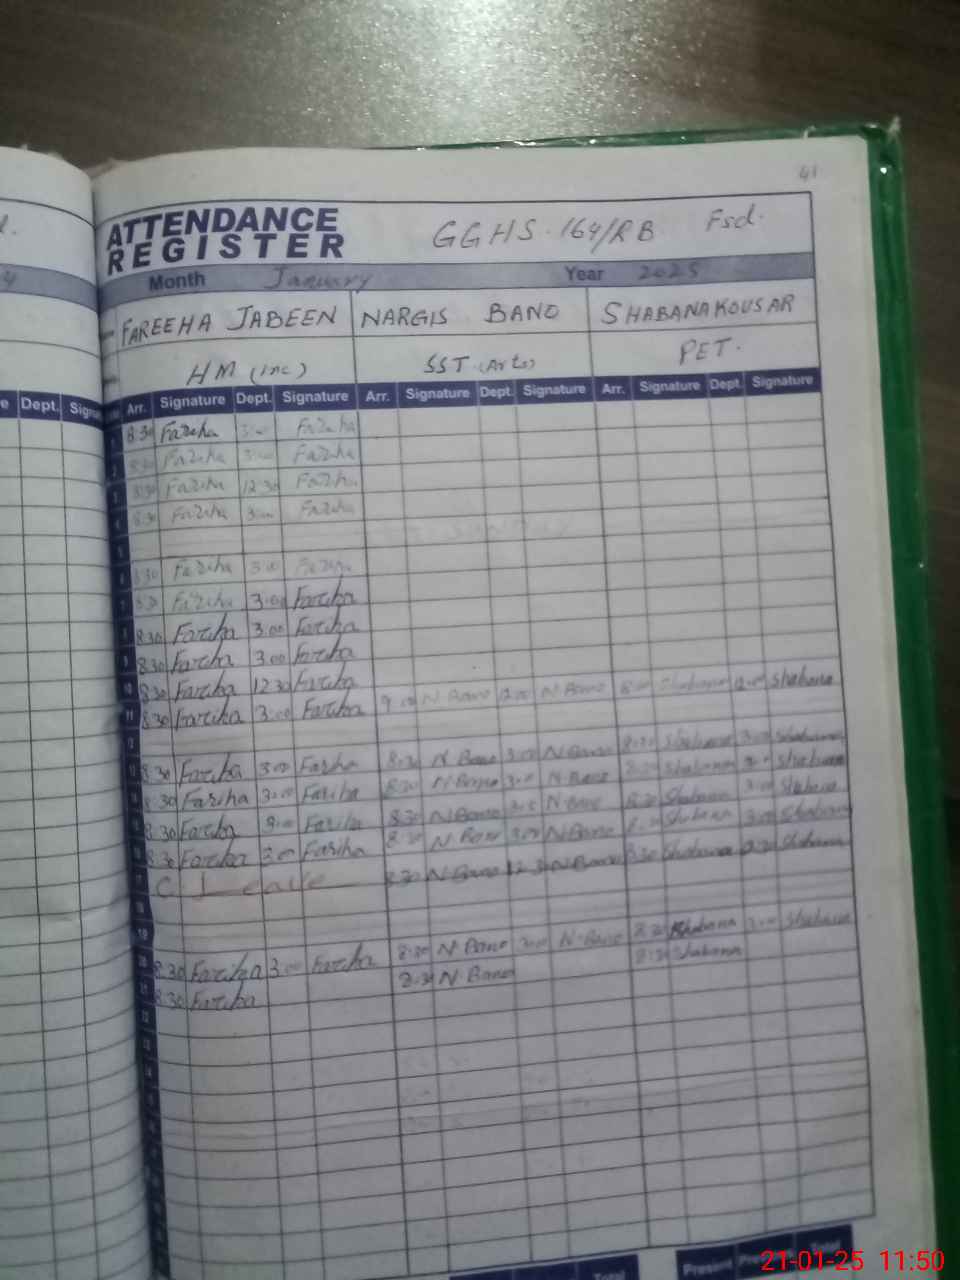 41
ATTENDANCE
REGISTER
GGHS. 164/RB Fsd.
Month January Year 2025
FAREEHA JABEEN NARGIS BANO SHABANA KOUSAR
HM (Inc) SST (Arts) PET.
e Dept. Arr. Signature Dept. Signature Arr. Signature Dept. Signature Arr. Signature Dept. Signature
1 8:30 Fariha 3:00 Fariha
2 8:30 Fariha 3:00 Fariha
3 8:30 Fariha 12:30 Fariha
4 8:30 Fariha 3:00 Fariha
5 SUNDAY
6 8:30 Fariha 3:00 Fariha
7 8:30 Fariha 3:00 Fariha
8 8:30 Fariha 3:00 Fariha
9 8:30 Fariha 3:00 Fariha
10 8:30 Fariha 12:30 Fariha
11 8:30 Fariha 3:00 Fariha 9:00 N Bano N Bano Shabana Shabana
12
13 8:30 Fariha 3:00 Fariha 8:30 N Bano 3:00 N Bano 8:30 Shabana 3:00 Shabana
14 8:30 Fariha 3:00 Fariha 8:30 N Bano 3:00 N Bano 8:30 Shabana Shabana
15 8:30 Fariha Fariha 8:30 N Bano N Bano 8:30 Shabana 3:00 Shabana
16 8:30 Fariha 3:00 Fariha 8:30 N Bano 3:00 N Bano Shabana 3:00 Shabana
17 C. Leave 8:30 N Bano 12:30 N Bano 8:30 Shabana Shabana
18
19
20 8:30 Fariha 3:00 Fariha 8:30 N Bano 3:00 N Bano 8:30 Shabana 3:00 Shabana
21 8:30 Fariha 8:30 N Bano 8:30 Shabana
22
23
Total Present Total
21-01-25 11:50